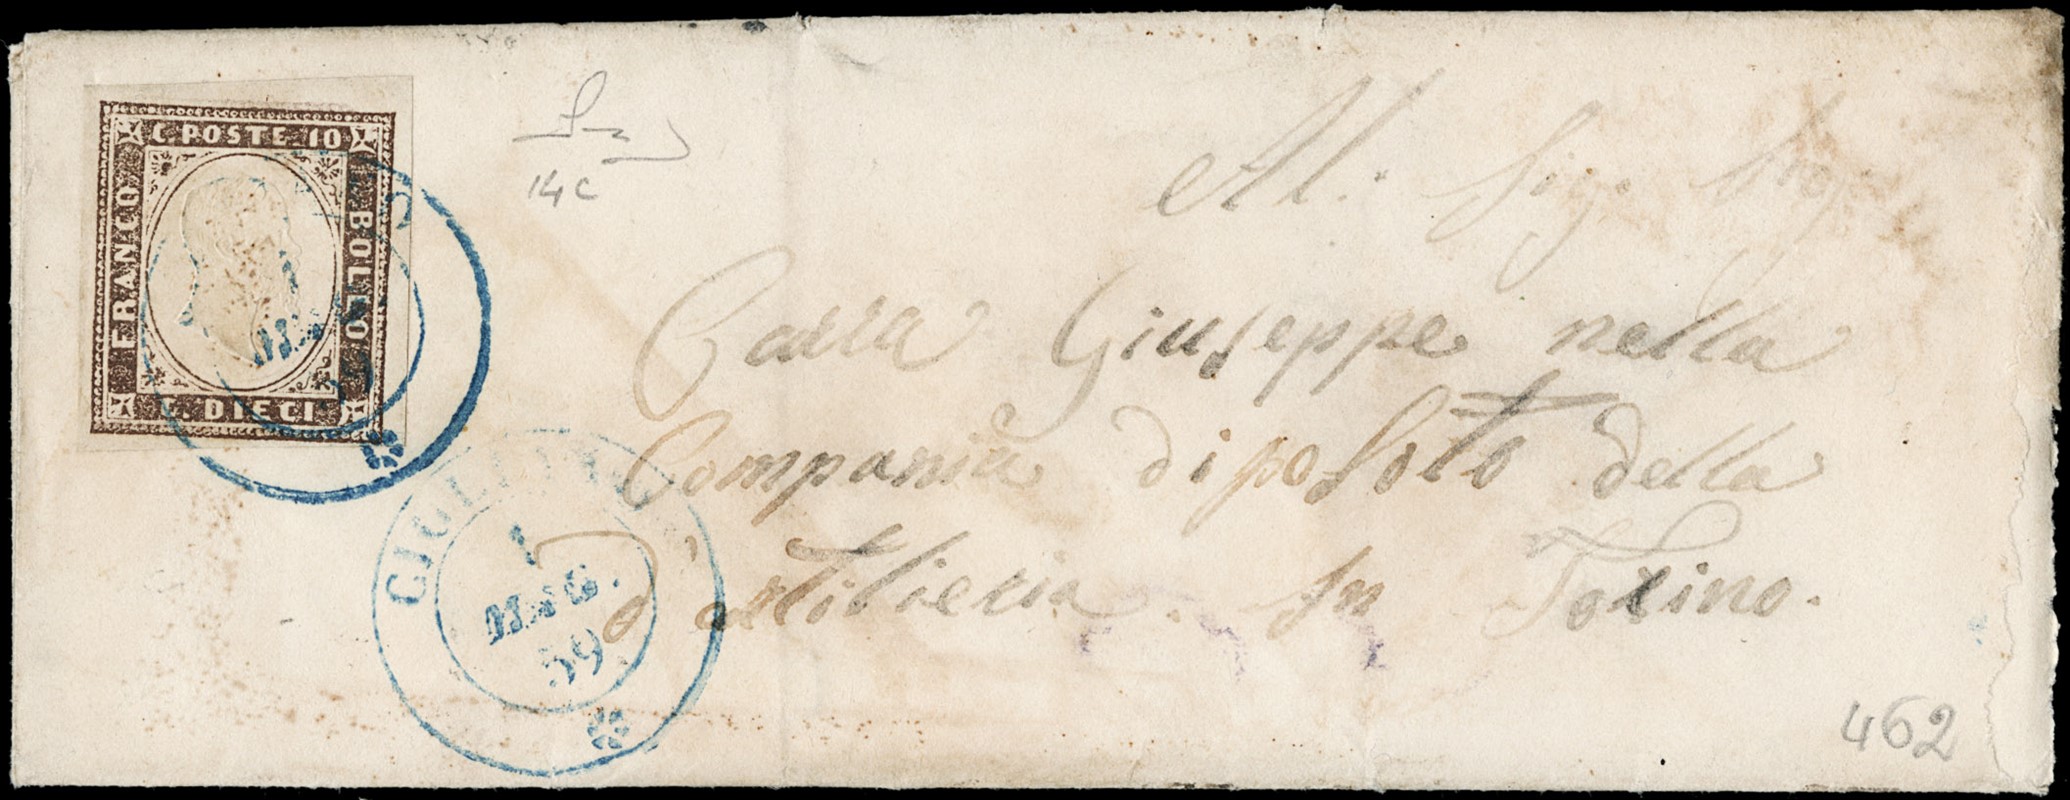 C. POSTE 10
FRANCO
BOLLO
C. DIECI
MAG
59
14c
Al: Sig:
Carra Giuseppe nella
Compania diposito della
d'Artilieria. In Torino.
CIGLI
1
MAG.
59
462